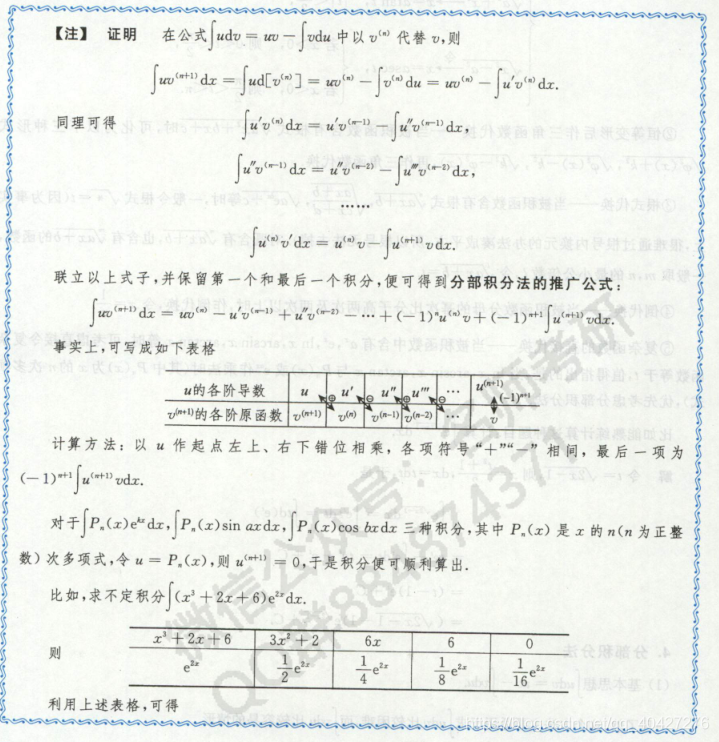 【注】 证明 在公式∫udv = uv − ∫vdu 中以 v⁽ⁿ⁾ 代替 v,则
∫uv⁽ⁿ⁺¹⁾dx = ∫ud[v⁽ⁿ⁾] = uv⁽ⁿ⁾ − ∫v⁽ⁿ⁾du = uv⁽ⁿ⁾ − ∫u′v⁽ⁿ⁾dx.
同理可得 ∫u′v⁽ⁿ⁾dx = u′v⁽ⁿ⁻¹⁾ − ∫u″v⁽ⁿ⁻¹⁾dx,
∫u″v⁽ⁿ⁻¹⁾dx = u″v⁽ⁿ⁻²⁾ − ∫u‴v⁽ⁿ⁻²⁾dx,
……
∫u⁽ⁿ⁾v′dx = u⁽ⁿ⁾v − ∫u⁽ⁿ⁺¹⁾vdx.
联立以上式子,并保留第一个和最后一个积分,便可得到分部积分法的推广公式:
∫uv⁽ⁿ⁺¹⁾dx = uv⁽ⁿ⁾ − u′v⁽ⁿ⁻¹⁾ + u″v⁽ⁿ⁻²⁾ − … + (−1)ⁿu⁽ⁿ⁾v + (−1)ⁿ⁺¹∫u⁽ⁿ⁺¹⁾vdx.
事实上,可写成如下表格
u的各阶导数 u u′ u″ u‴ … u⁽ⁿ⁺¹⁾
⊕ ⊖ ⊕ (−1)ⁿ⁺¹
v⁽ⁿ⁺¹⁾的各阶原函数 v⁽ⁿ⁺¹⁾ v⁽ⁿ⁾ v⁽ⁿ⁻¹⁾ v⁽ⁿ⁻²⁾ … v
计算方法:以 u 作起点左上、右下错位相乘,各项符号“+”“−”相间,最后一项为
(−1)ⁿ⁺¹∫u⁽ⁿ⁺¹⁾vdx.
对于∫Pₙ(x)eᵏˣdx,∫Pₙ(x)sin axdx,∫Pₙ(x)cos bxdx 三种积分,其中 Pₙ(x) 是 x 的 n(n 为正整
数)次多项式,令 u = Pₙ(x),则 u⁽ⁿ⁺¹⁾ = 0,于是积分便可顺利算出.
比如,求不定积分∫(x³ + 2x + 6)e²ˣdx.
则 x³ + 2x + 6 3x² + 2 6x 6 0
e²ˣ 1/2 e²ˣ 1/4 e²ˣ 1/8 e²ˣ 1/16 e²ˣ
利用上述表格,可得